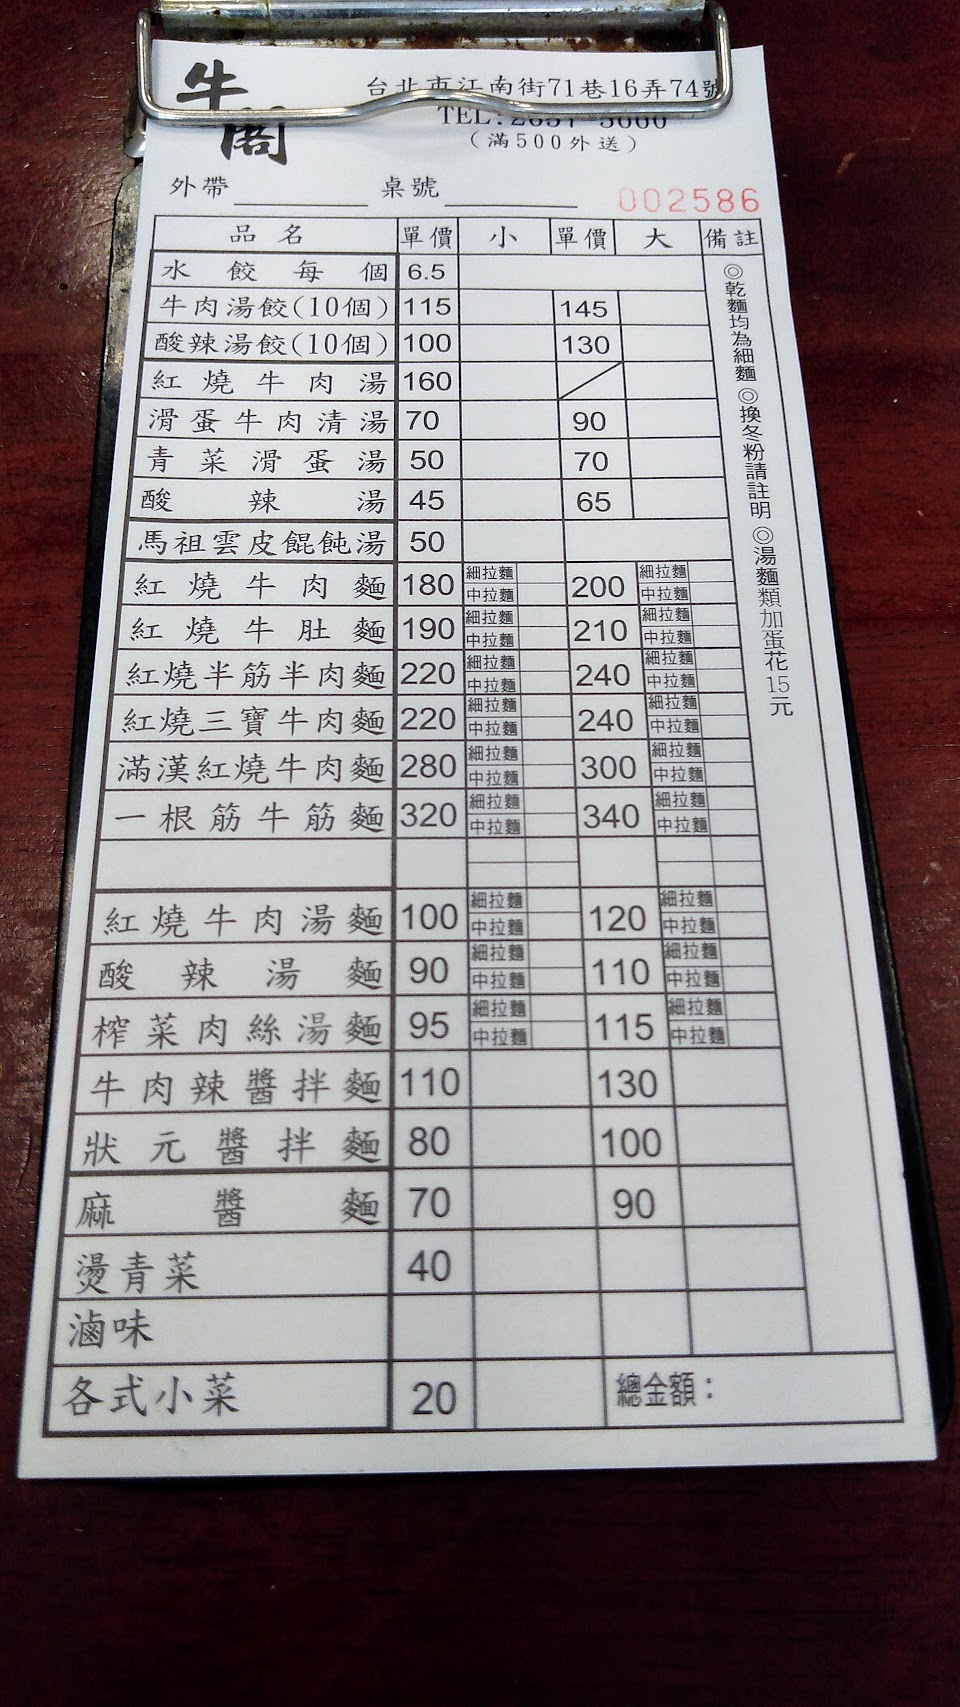 牛
閣
台北市江南街71巷16弄74號
TEL:2657-5660
(滿500外送)
外帶 桌號
002586
品名 單價 小 單價 大 備註
水餃每個 6.5
牛肉湯餃(10個) 115 145
酸辣湯餃(10個) 100 130
紅燒牛肉湯 160
滑蛋牛肉清湯 70 90
青菜滑蛋湯 50 70
酸辣湯 45 65
馬祖雲皮餛飩湯 50
紅燒牛肉麵 180 細拉麵 中拉麵 200 細拉麵 中拉麵
紅燒牛肚麵 190 細拉麵 中拉麵 210 細拉麵 中拉麵
紅燒半筋半肉麵 220 細拉麵 中拉麵 240 細拉麵 中拉麵
紅燒三寶牛肉麵 220 細拉麵 中拉麵 240 細拉麵 中拉麵
滿漢紅燒牛肉麵 280 細拉麵 中拉麵 300 細拉麵 中拉麵
一根筋牛筋麵 320 細拉麵 中拉麵 340 細拉麵 中拉麵
紅燒牛肉湯麵 100 細拉麵 中拉麵 120 細拉麵 中拉麵
酸辣湯麵 90 細拉麵 中拉麵 110 細拉麵 中拉麵
榨菜肉絲湯麵 95 細拉麵 中拉麵 115 細拉麵 中拉麵
牛肉辣醬拌麵 110 130
狀元醬拌麵 80 100
麻醬麵 70 90
燙青菜 40
滷味
各式小菜 20 總金額：
◎乾麵均為細麵◎換冬粉請註明◎湯麵類加蛋花15元